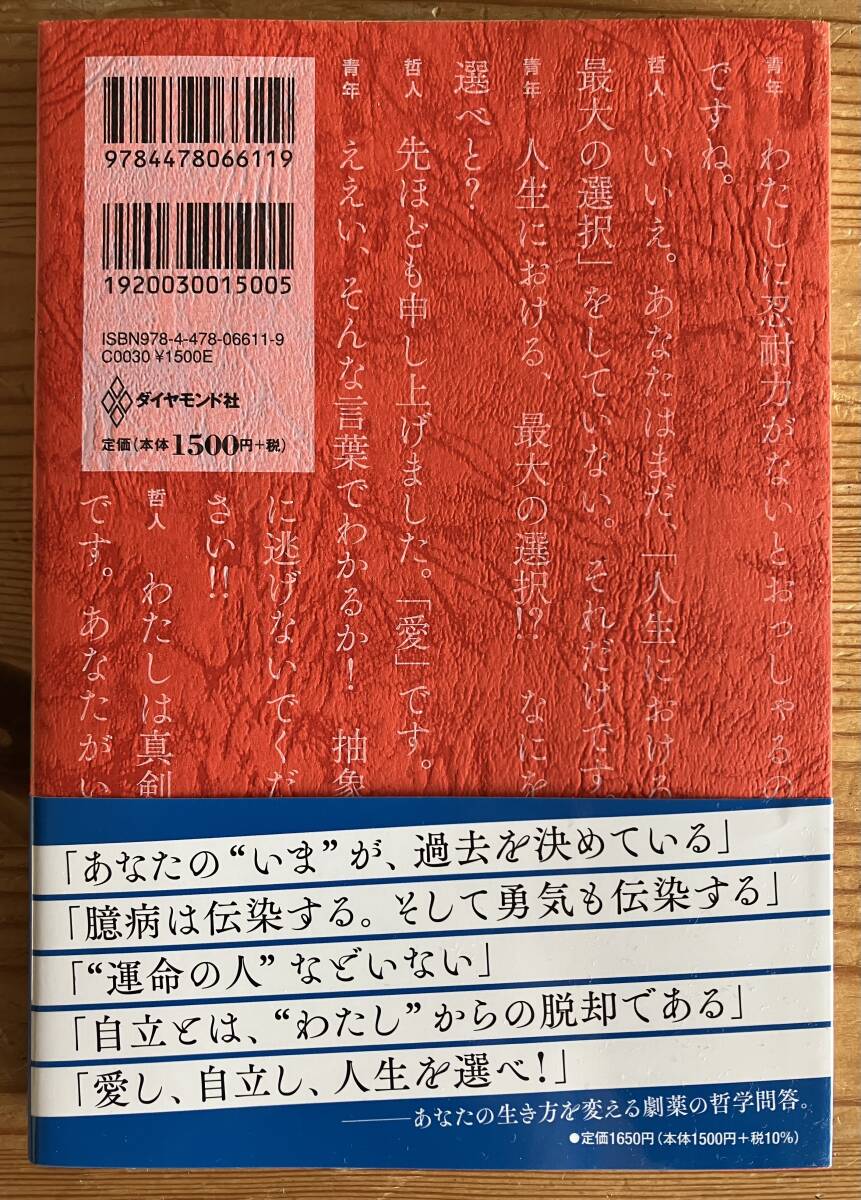 9784478066119
1920030015005
ISBN978-4-478-06611-9
C0030 ¥1500E
ダイヤモンド社
定価(本体1500円+税)
青年 わたしに忍耐力がないとおっしゃるの
ですね。
哲人 いいえ。あなたはまだ、「人生における
最大の選択」をしていない。それだけです。
青年 人生における、最大の選択!? なにを
選べと?
哲人 先ほども申し上げました。「愛」です。
青年 ええい、そんな言葉でわかるか! 抽象
に逃げないでくだ
さい!!
哲人 わたしは真剣
です。あなたがい
「あなたの“いま”が、過去を決めている」
「臆病は伝染する。そして勇気も伝染する」
「“運命の人”などいない」
「自立とは、“わたし”からの脱却である」
「愛し、自立し、人生を選べ!」
——あなたの生き方を変える劇薬の哲学問答。
●定価1650円(本体1500円+税10%)